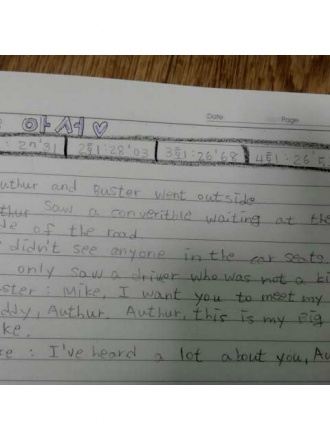 Date Page
아서♡
: 27'31 2회:28'03 3회:26'68 4회:26'5
uthur and Buster went outside.
thur saw a converithle waiting at the
de of the road
didn't see anyone in the car seats
only saw a driver who was not a ki
ster : Mike, I want you to meet my
ddy, Authur. Authur, this is my Big
ke.
ke : I've heard a lot about you, Au